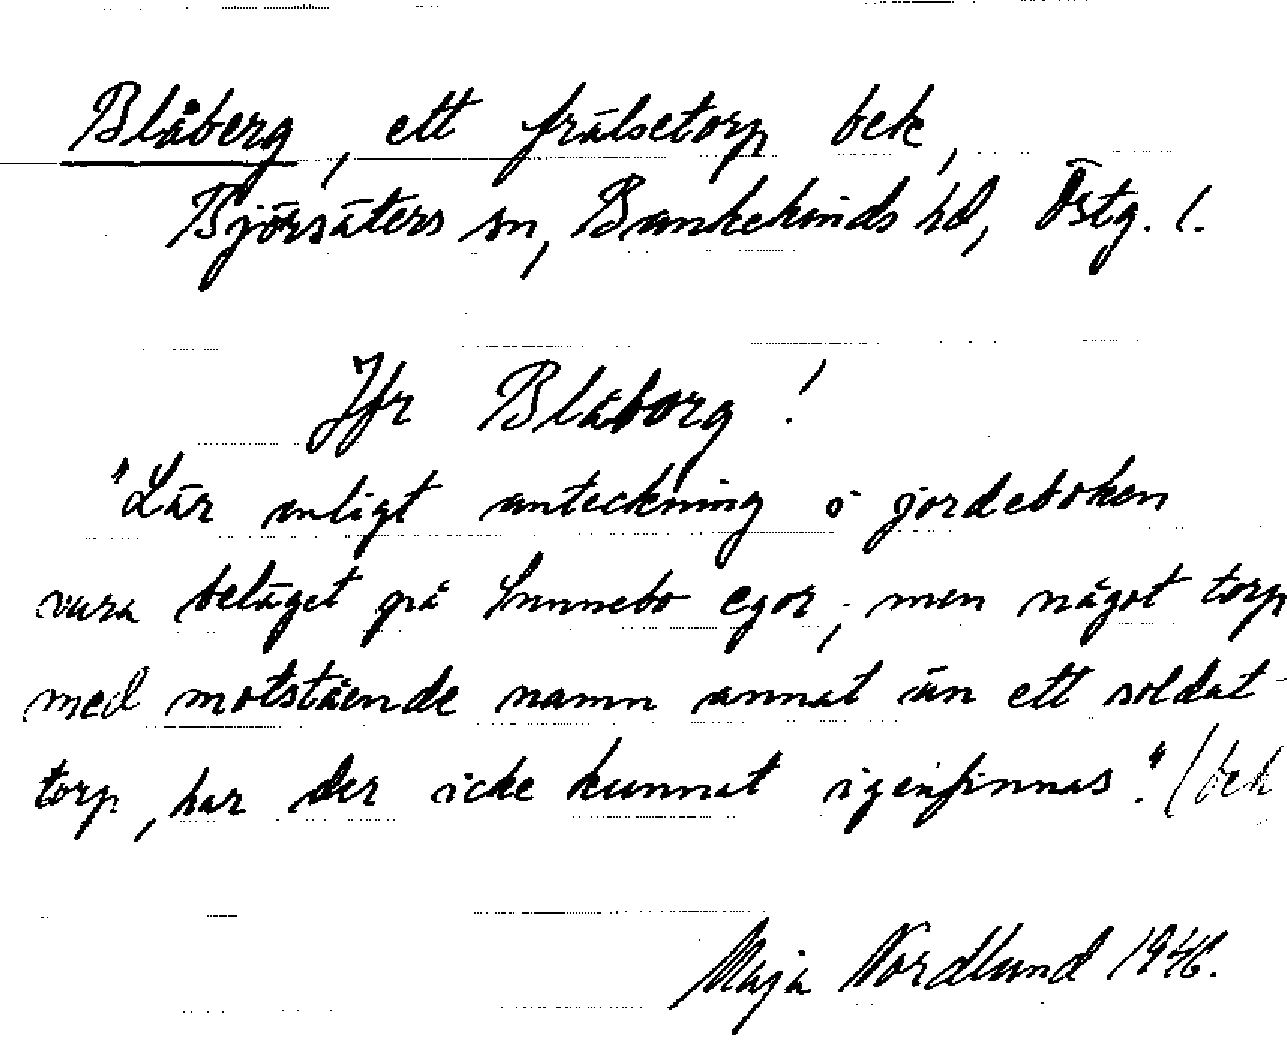 Blåberg, ett frälsetorp bek,
Björsäters sn, Bankekinds hd, Östg. l.
Jfr Blåborg!
"Lär enligt anteckning i jordeboken
vara beläget på Sunnebo egor, men något torp
med motstående namn annat än ett soldat-
torp, har der icke kunnat igenfinnas." (bek
Maja Nordlund 1946.